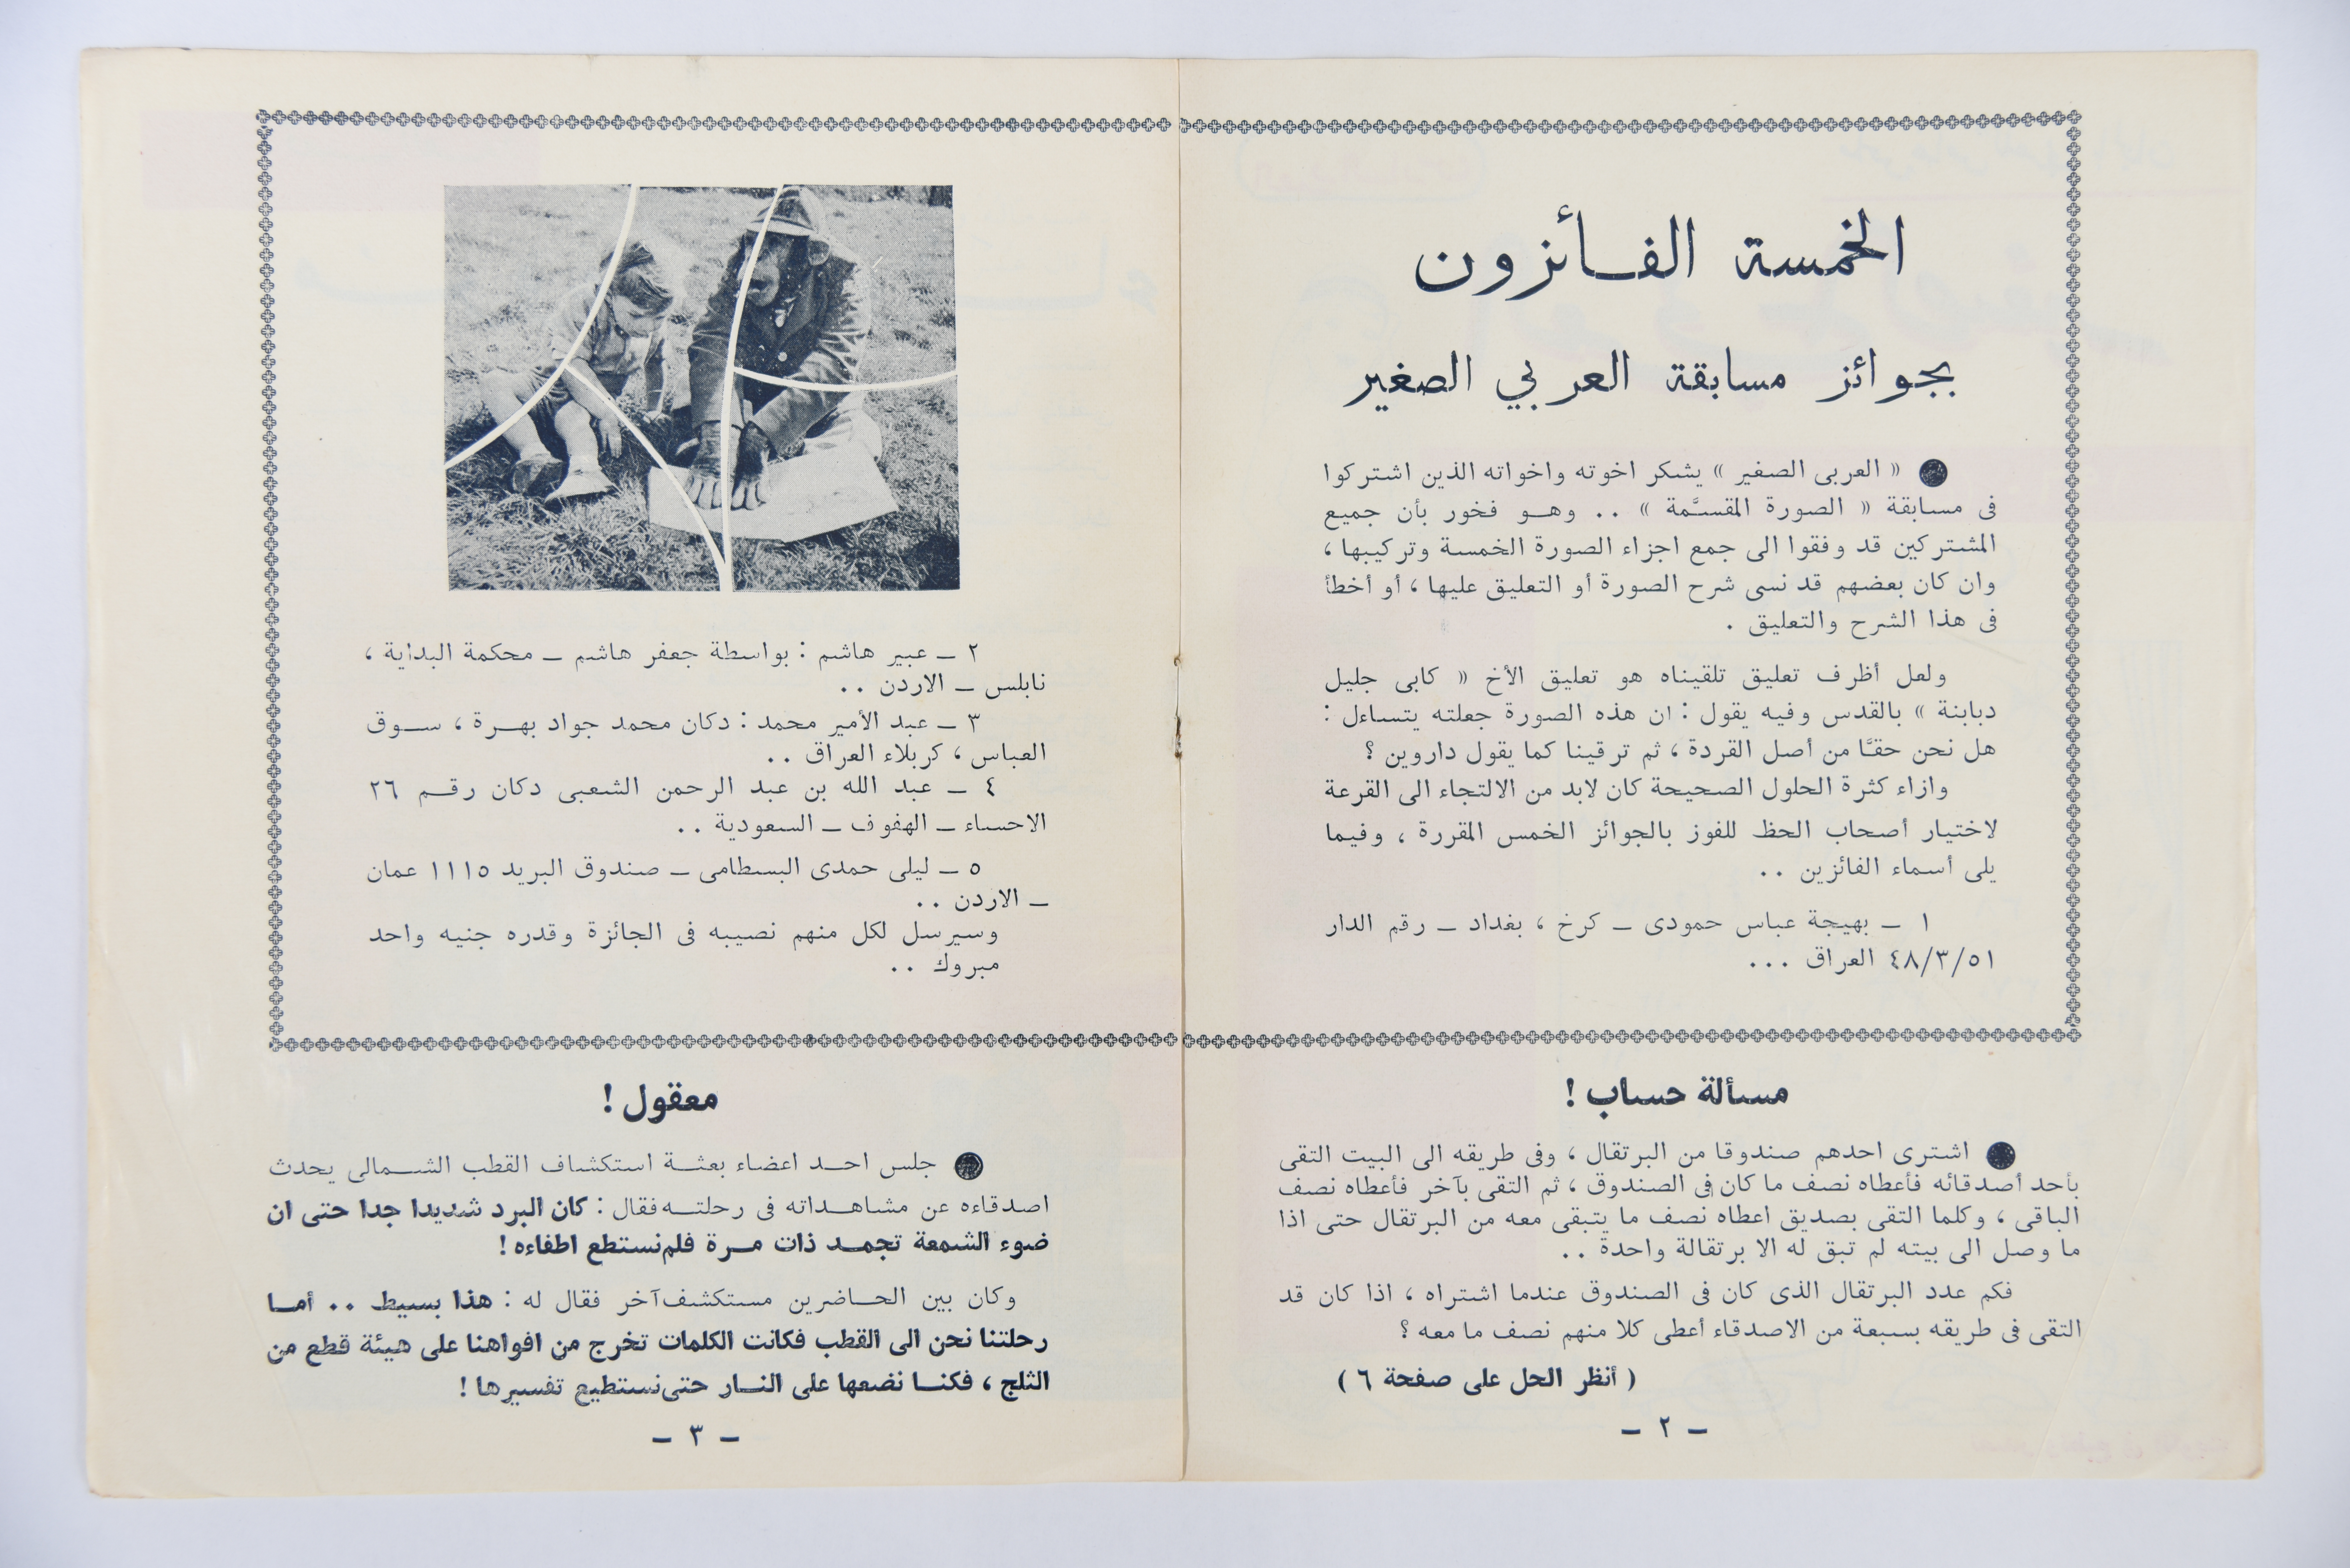 الخمسة الفـائزون
بجوائز مسابقة العربي الصغير
« العربى الصغير » يشكر اخوته واخواته الذين اشتركوا
فى مسابقة « الصورة المقسَّمة » .. وهـو فخور بأن جميع
المشتركين قد وفقوا الى جمع اجزاء الصورة الخمسة وتركيبها ،
وان كان بعضهم قد نسى شرح الصورة أو التعليق عليها ، أو أخطأ
فى هذا الشرح والتعليق .
ولعل أظرف تعليق تلقيناه هو تعليق الأخ « كابى جليل
دبابنة » بالقدس وفيه يقول : ان هذه الصورة جعلته يتساءل :
هل نحن حقًا من أصل القردة ، ثم ترقينا كما يقول داروين ؟
وازاء كثرة الحلول الصحيحة كان لابد من الالتجاء الى القرعة
لاختيار أصحاب الحظ للفوز بالجوائز الخمس المقررة ، وفيما
يلى أسماء الفائزين ..
١ ـ بهيجة عباس حمودى ـ كرخ ، بغداد ـ رقم الدار
٤٨/٣/٥١ العراق ...
مسألة حساب !
اشترى احدهم صندوقا من البرتقال ، وفى طريقه الى البيت التقى
بأحد أصدقائه فأعطاه نصف ما كان فى الصندوق ، ثم التقى بآخر فأعطاه نصف
الباقى ، وكلما التقى بصديق اعطاه نصف ما يتبقى معه من البرتقال حتى اذا
ما وصل الى بيته لم تبق له الا برتقالة واحدة ..
فكم عدد البرتقال الذى كان فى الصندوق عندما اشتراه ، اذا كان قد
التقى فى طريقه بسبعة من الاصدقاء أعطى كلا منهم نصف ما معه ؟
( أنظر الحل على صفحة ٦ )
ـ ٢ ـ
٢ ـ عبير هاشم : بواسطة جعفر هاشم ـ محكمة البداية ،
نابلس ـ الاردن ..
٣ ـ عبد الأمير محمد : دكان محمد جواد بهـرة ، سـوق
العباس ، كربلاء العراق ..
٤ ـ عبد الله بن عبد الرحمن الشعبى دكان رقـم ٢٦
الاحساء ـ الهفوف ـ السعودية ..
٥ ـ ليلى حمدى البسطامى ـ صندوق البريد ١١١٥ عمان
ـ الاردن ..
وسيرسل لكل منهم نصيبه فى الجائزة وقدره جنيه واحد
مبروك ..
معقول !
جلس احـد اعضاء بعثـة استكشاف القطب الشـمالى يحدث
اصدقاءه عن مشاهـداته فى رحلتـه فقال : كان البرد شديدا جدا حتى ان
ضوء الشمعة تجمـد ذات مـرة فلم نستطع اطفاءه !
وكان بين الحـاضرين مستكشف آخر فقال له : هذا بسيط .. أمـا
رحلتنا نحن الى القطب فكانت الكلمات تخرج من افواهنا على هيئة قطع من
الثلج ، فكنـا نضعها على النـار حتى نستطيع تفسيرها !
ـ ٣ ـ